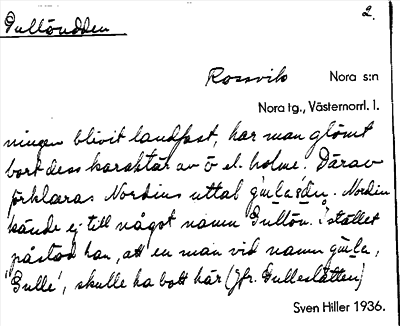 Gullöudden
2.
Rossvik Nora s:n
Nora tg., Västernorrl. l.
ningen blivit landfast, har man glömt
bort dess karaktär av ö el. holme. Därav
förklaras Nordins uttal
Nordin
kände ej till något namn Gullön. Istället
påstod han, att en man vid namn
'Gulle', skulle ha bott här (Jfr. Gulleslätten)
Sven Hiller 1936.